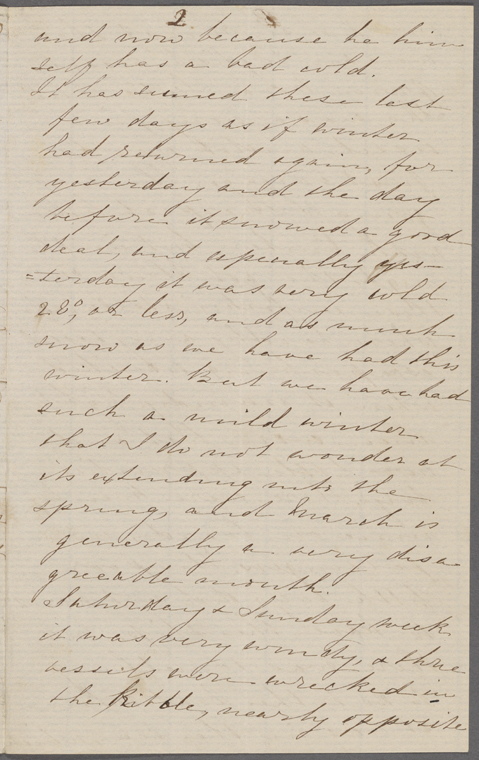 2
and now because he him
self has a bad cold.
It has seemed these last
few days as if winter
had returned again, for
yesterday and the day
before it snowed a good
deal, and especially yes-
=terday it was very cold
28°, or less, and as much
snow as we have had this
winter. But we have had
such a mild winter
that I do not wonder at
its extending into the
spring, and March is
generally a very disa
greeable month.
Saturday & Sunday week
it was very windy, & three
vessels were wrecked in
the Ribble, nearly opposite